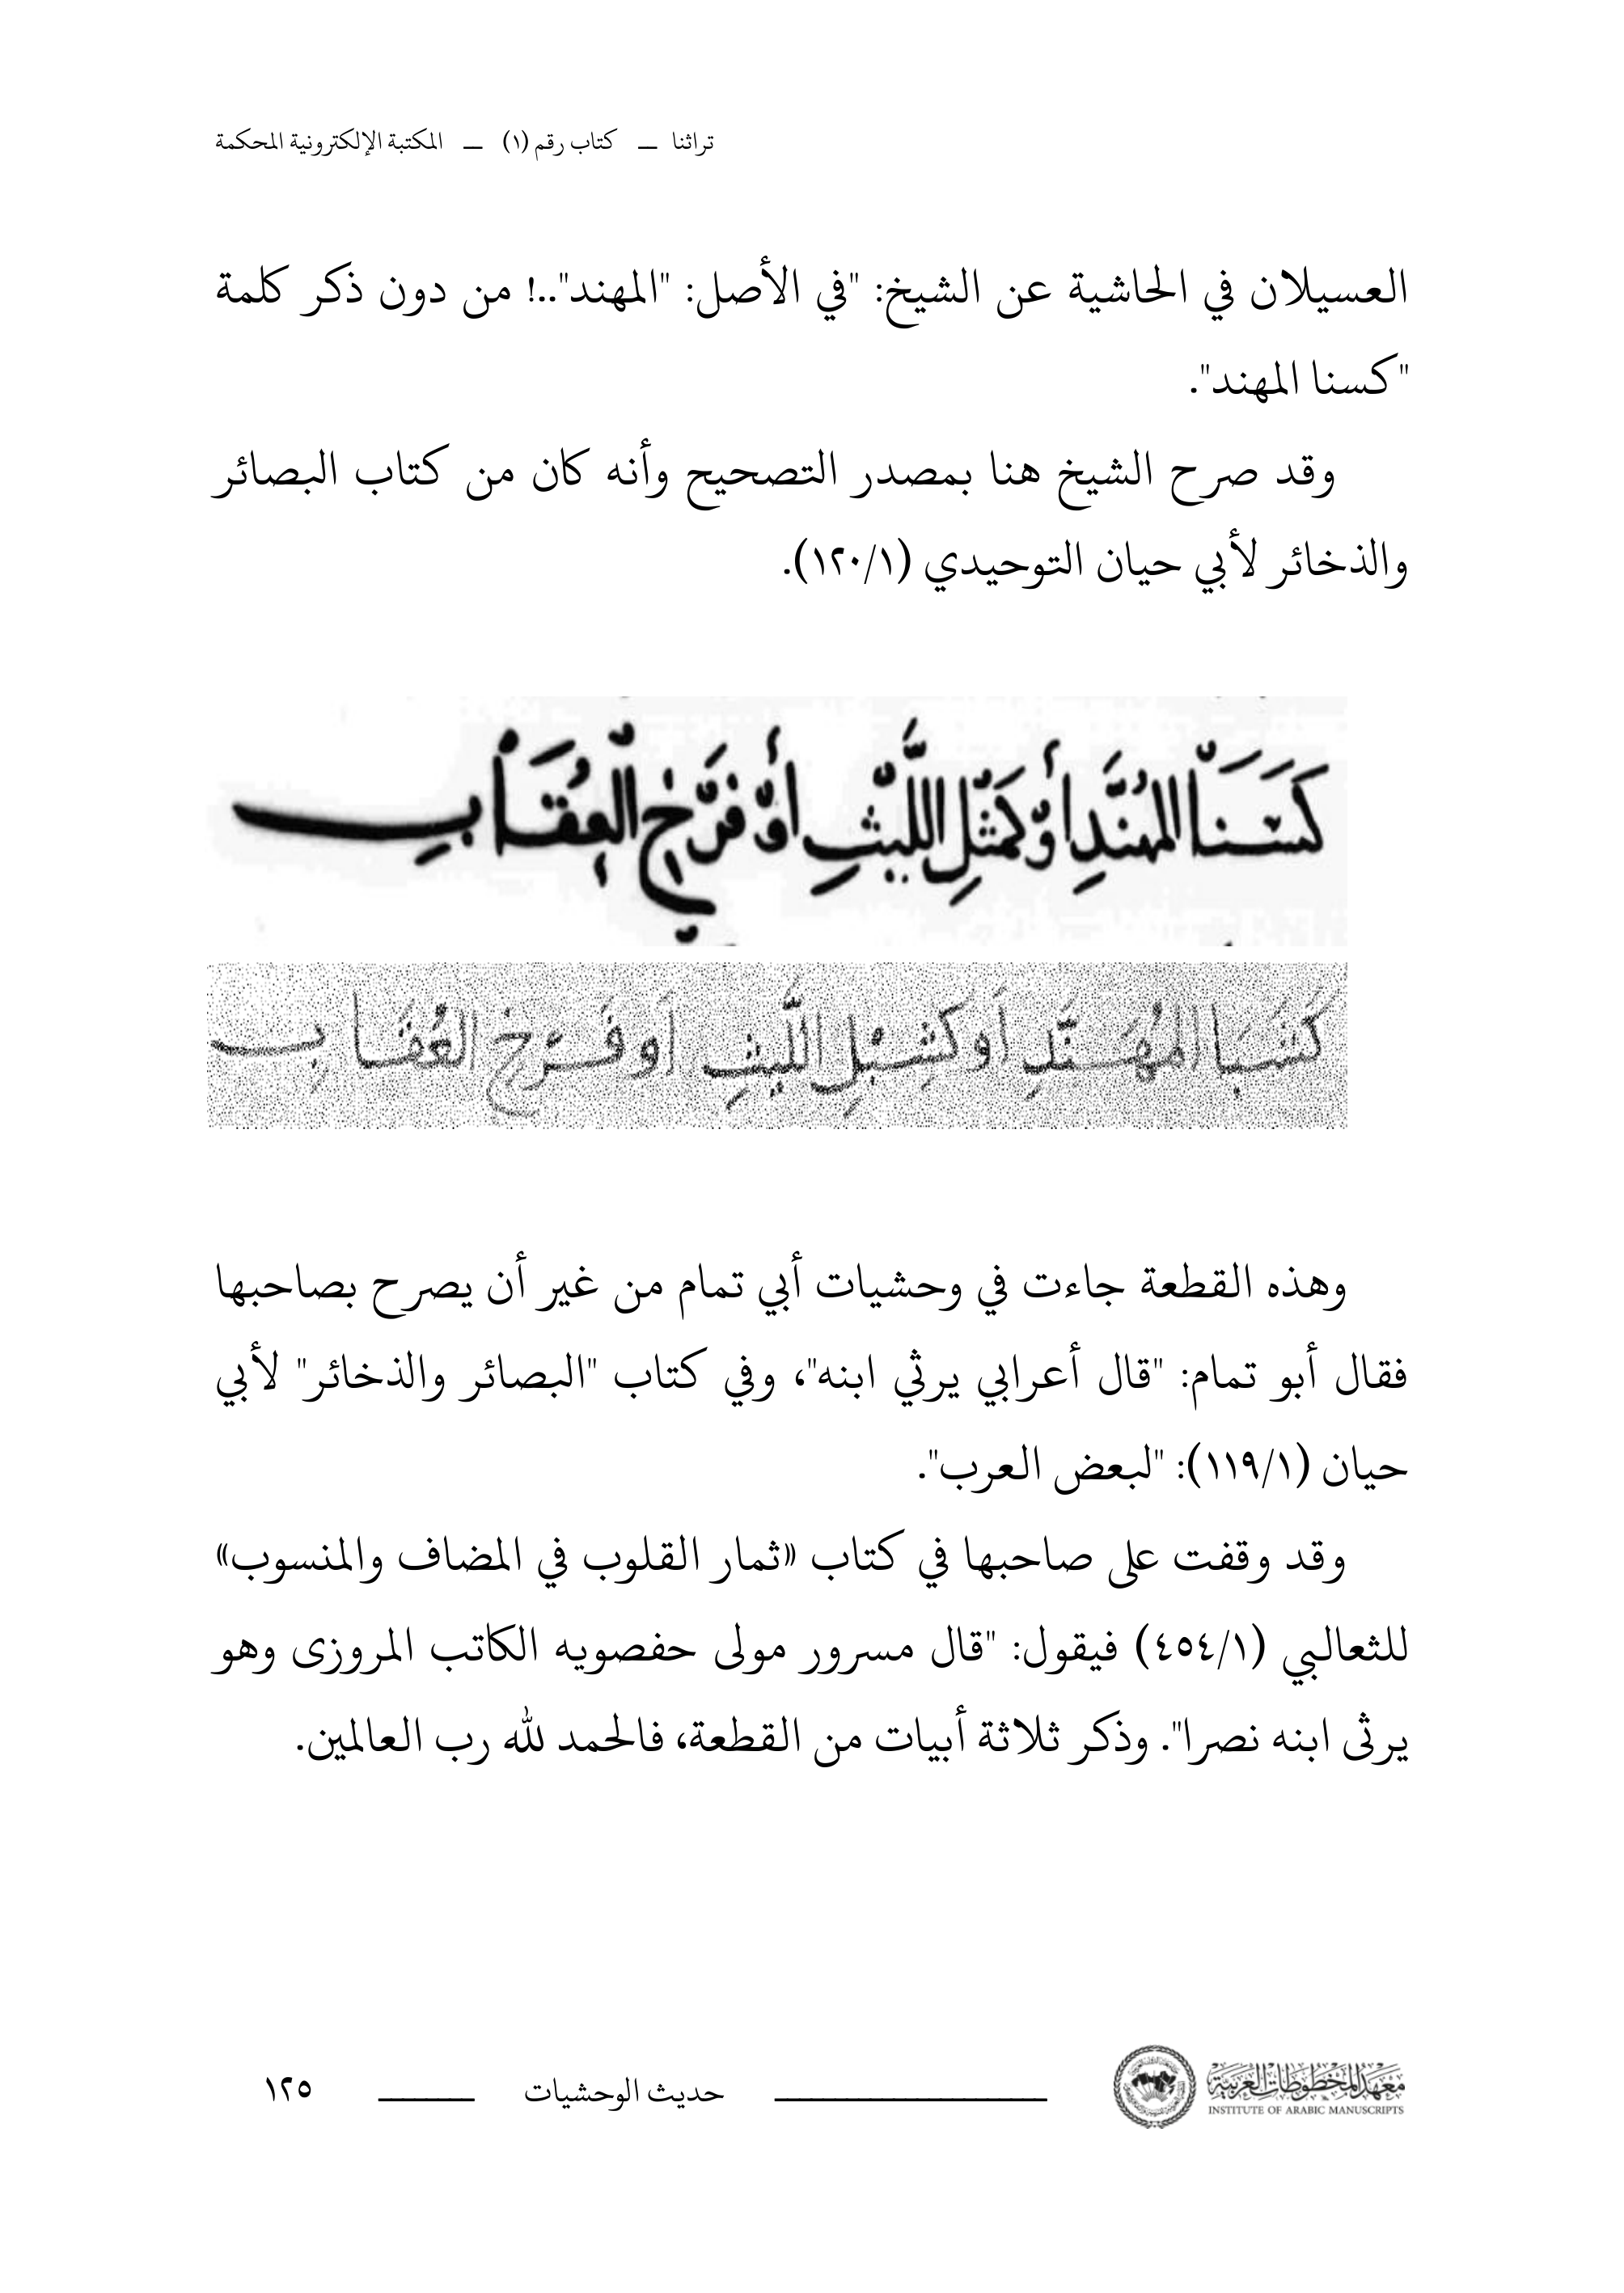 تراثنا ــ كتاب رقم (١) ــ المكتبة الإلكترونية المحكمة
العسيلان في الحاشية عن الشيخ: "في الأصل: "المهند"..! من دون ذكر كلمة
"كسنا المهند".
وقد صرح الشيخ هنا بمصدر التصحيح وأنه كان من كتاب البصائر
والذخائر لأبي حيان التوحيدي (١٢٠/١).
كَسَنَا المُهَنَّدِ أَوْ كَمَثَلِ اللَّيْثِ أَوْ فَرْخِ العُقَابِ
كَشَبَا المُهَنَّدِ أَو كَشِبْلِ اللَّيثِ أَو فَرْخِ العُقَابِ
وهذه القطعة جاءت في وحشيات أبي تمام من غير أن يصرح بصاحبها
فقال أبو تمام: "قال أعرابي يرثي ابنه"، وفي كتاب "البصائر والذخائر" لأبي
حيان (١١٩/١): "لبعض العرب".
وقد وقفت على صاحبها في كتاب «ثمار القلوب في المضاف والمنسوب»
للثعالبي (٤٥٤/١) فيقول: "قال مسرور مولى حفصويه الكاتب المروزى وهو
يرثى ابنه نصرا". وذكر ثلاثة أبيات من القطعة، فالحمد لله رب العالمين.
معهد المخطوطات العربية
INSTITUTE OF ARABIC MANUSCRIPTS
حديث الوحشيات
١٢٥